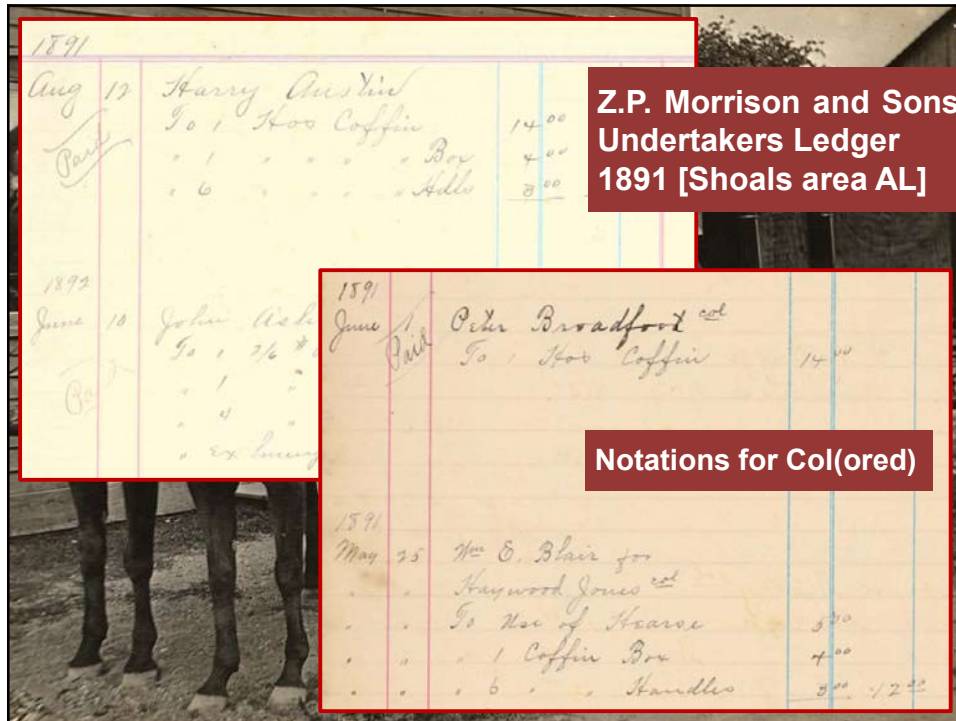 1891
Aug 12 Harry Austin
Paid
To 1 Coffin 14 00
" 1 " " " " Box 4 00
" 6 " " " " Hdls 3 00
1892
June 10 John
To 1
" 1
" 4
" Ex
Z.P. Morrison and Sons
Undertakers Ledger
1891 [Shoals area AL]
1891
June 1 Peter Broadfoot col
Paid
To 1 Coffin 14 00
Notations for Col(ored)
1891
May 25 Wm E. Blair for
" " Haywood Jones col
" " To Use of Hearse 5 00
" " " 1 Coffin Box 4 00
" " " 6 " " Handles 3 00 12 00